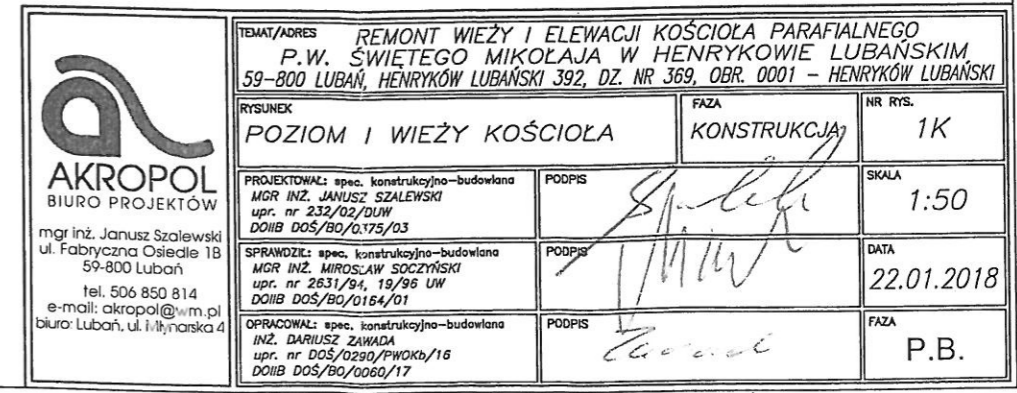 AKROPOL
BIURO PROJEKTÓW
mgr inż. Janusz Szalewski
ul. Fabryczna Osiedle 1B
59-800 Lubań
tel. 506 850 814
e-mail: akropol@wm.pl
biuro: Lubań, ul. Młynarska 4
TEMAT/ADRES REMONT WIEŻY I ELEWACJI KOŚCIOŁA PARAFIALNEGO
P.W. ŚWIĘTEGO MIKOŁAJA W HENRYKOWIE LUBAŃSKIM
59-800 LUBAŃ, HENRYKÓW LUBAŃSKI 392, DZ. NR 369, OBR. 0001 – HENRYKÓW LUBAŃSKI
RYSUNEK
POZIOM I WIEŻY KOŚCIOŁA
FAZA
KONSTRUKCJA
NR RYS.
1K
PROJEKTOWAŁ: spec. konstrukcyjno-budowlana
MGR INŻ. JANUSZ SZALEWSKI
upr. nr 232/02/DUW
DOIIB DOŚ/BO/0375/03
PODPIS
SKALA
1:50
SPRAWDZIŁ: spec. konstrukcyjno-budowlana
MGR INŻ. MIROSŁAW SOCZYŃSKI
upr. nr 2631/94, 19/96 UW
DOIIB DOŚ/BO/0164/01
PODPIS
DATA
22.01.2018
OPRACOWAŁ: spec. konstrukcyjno-budowlana
INŻ. DARIUSZ ZAWADA
upr. nr DOŚ/0290/PWOKb/16
DOIIB DOŚ/BO/0060/17
PODPIS
FAZA
P.B.